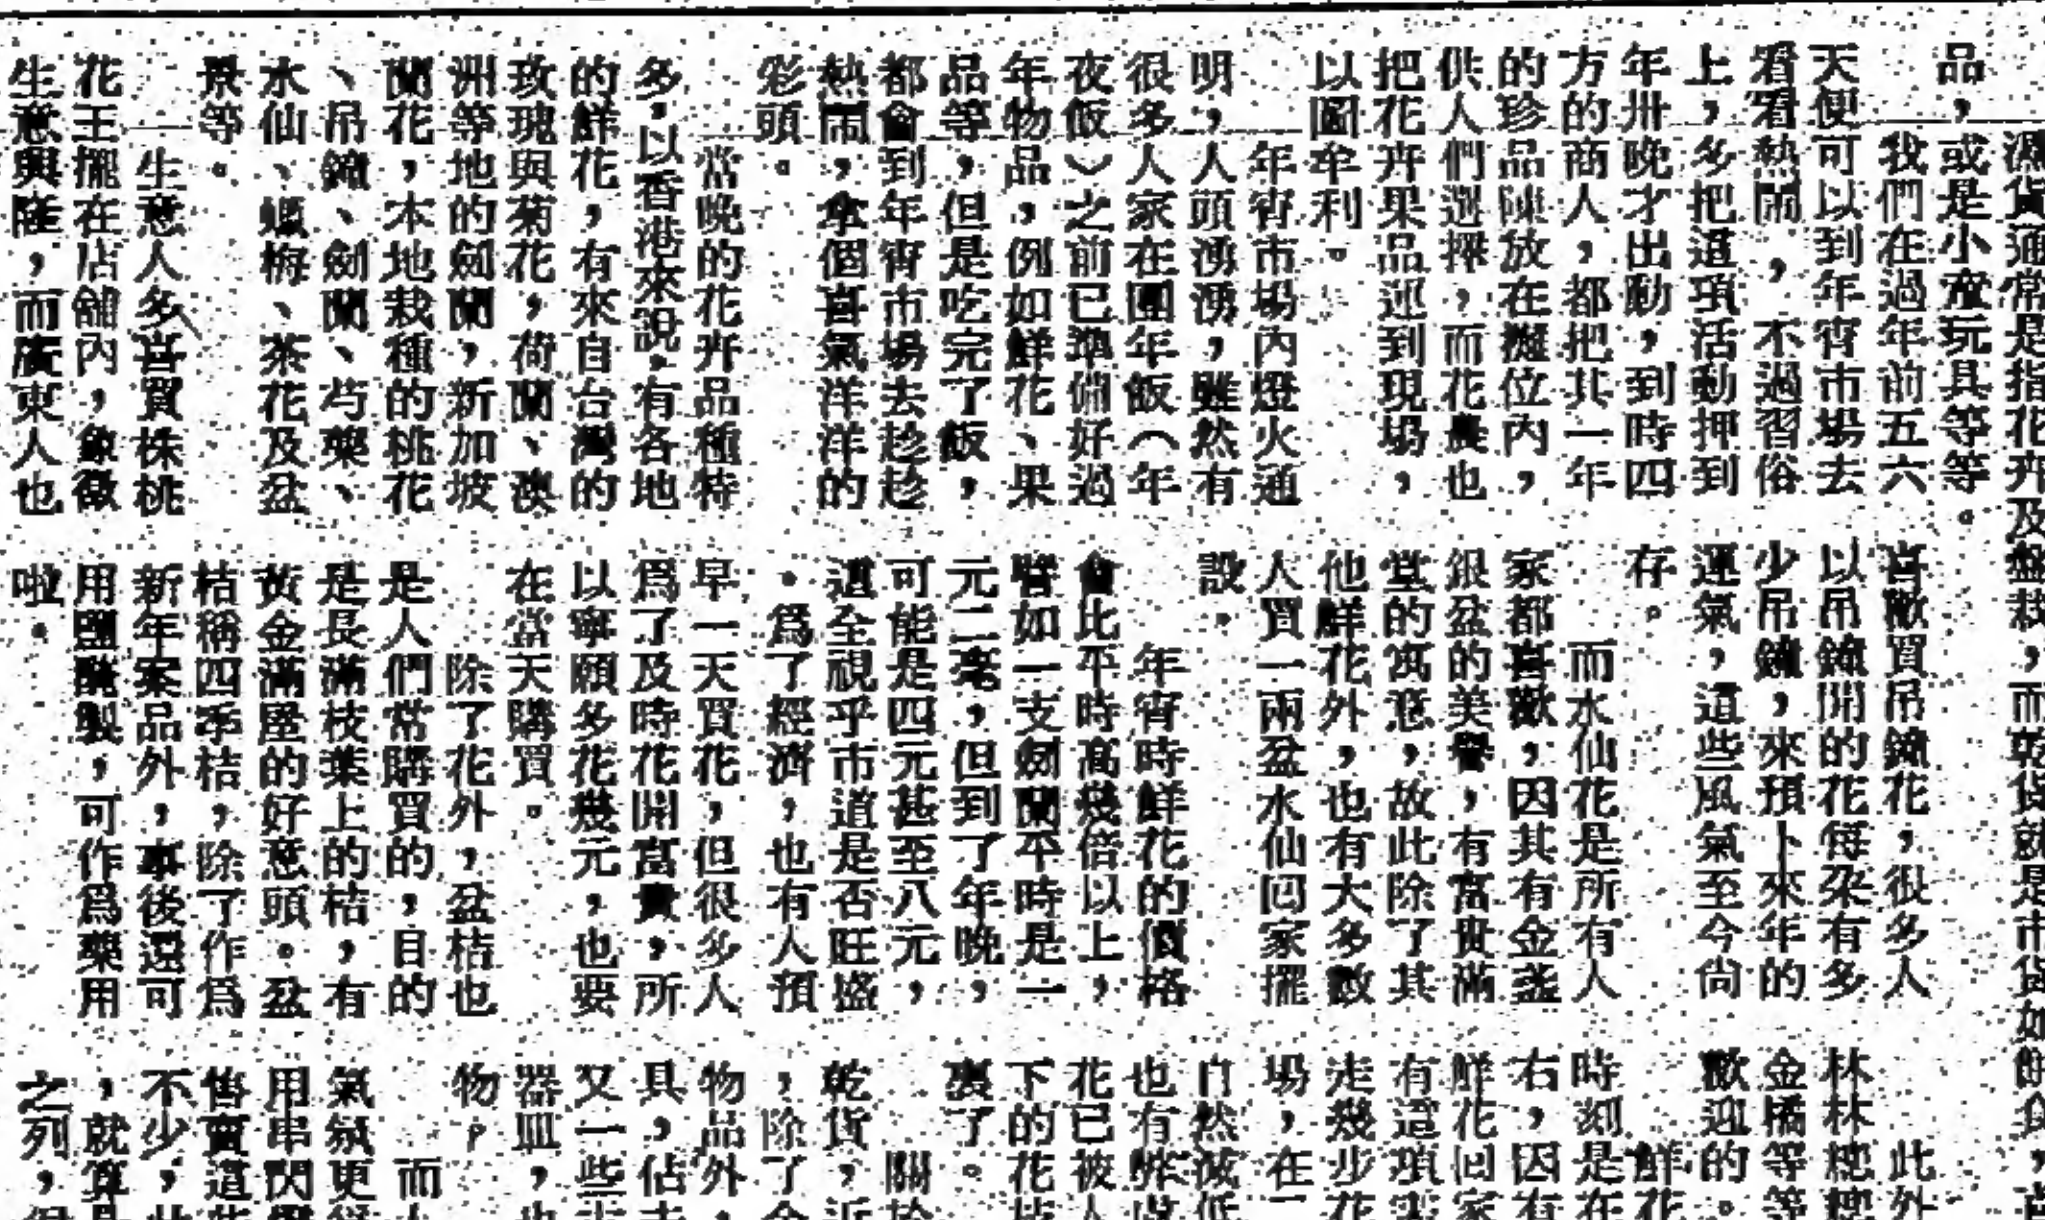 濕貨通常是指花卉及盤栽，而乾貨就是市貨如餅食，
品，或是小童玩具等等。
我們在過年前五六
天便可以到年宵市場去
看看熱鬧，不過習俗
上，多把這項活動押到
年卅晚才出動，到時四
方的商人，都把其一年
的珍品陳放在攤位內，
供人們選擇，而花農也
把花卉果品運到現場，
以圖牟利。
年宵市場內燈火通
明，人頭湧湧，雖然有
很多人家在團年飯（年
夜飯）之前已準備好過
年物品，例如鮮花、果
品等，但是吃完了飯，
都會到年宵市場去趁趁
熱鬧，拿個喜氣洋洋的
彩頭。
當晚的花卉品種特
多，以香港來說，有各地
的鮮花，有來自台灣的
玫瑰與菊花，荷蘭、澳
洲等地的劍蘭，新加坡
蘭花，本地栽種的桃花
、吊鐘、劍蘭、芍藥、
水仙、蠟梅、茶花及盆
景等。
生意人多喜買株桃
花王擺在店舖內，象徵
生意興隆，而廣東人也
喜歡買吊鐘花，很多人
以吊鐘開的花每朵有多
少吊鐘，來預卜來年的
運氣，這些風氣至今尚
存。
而水仙花是所有人
家都喜歡，因其有金盞
銀盆的美譽，有富貴滿
堂的寓意，故此除了其
他鮮花外，也有大多數
人買一兩盆水仙回家擺
設。
年宵時鮮花的價格
會比平時高幾倍以上，
譬如一支劍蘭平時是一
元二毫，但到了年晚，
可能是四元甚至八元，
這全視乎市道是否旺盛
。爲了經濟，也有人預
早一天買花，但很多人
爲了及時花開富貴，所
以寧願多花幾元，也要
在當天購買。
除了花外，盆桔也
是人們常購買的，目的
是長滿枝葉上的桔，有
黃金滿屋的好意頭。盆
桔稱四季桔，除了作爲
新年案品外，事後還可
用鹽醃製，可作爲藥用
啦。
此外
林林總總
金橘等等
歡迎的。
鮮花
時刻是在
右，因有
鮮花回家
有這項
走幾步花
場，在
自然減低
也有
花已被人
下的花
裏了。
關於
乾貨，近
，除了
物品外，
具，佔
又一些
器皿，也
物，
而
氣氛更
用串閃
售賣這些
不少，
，就算
之列，